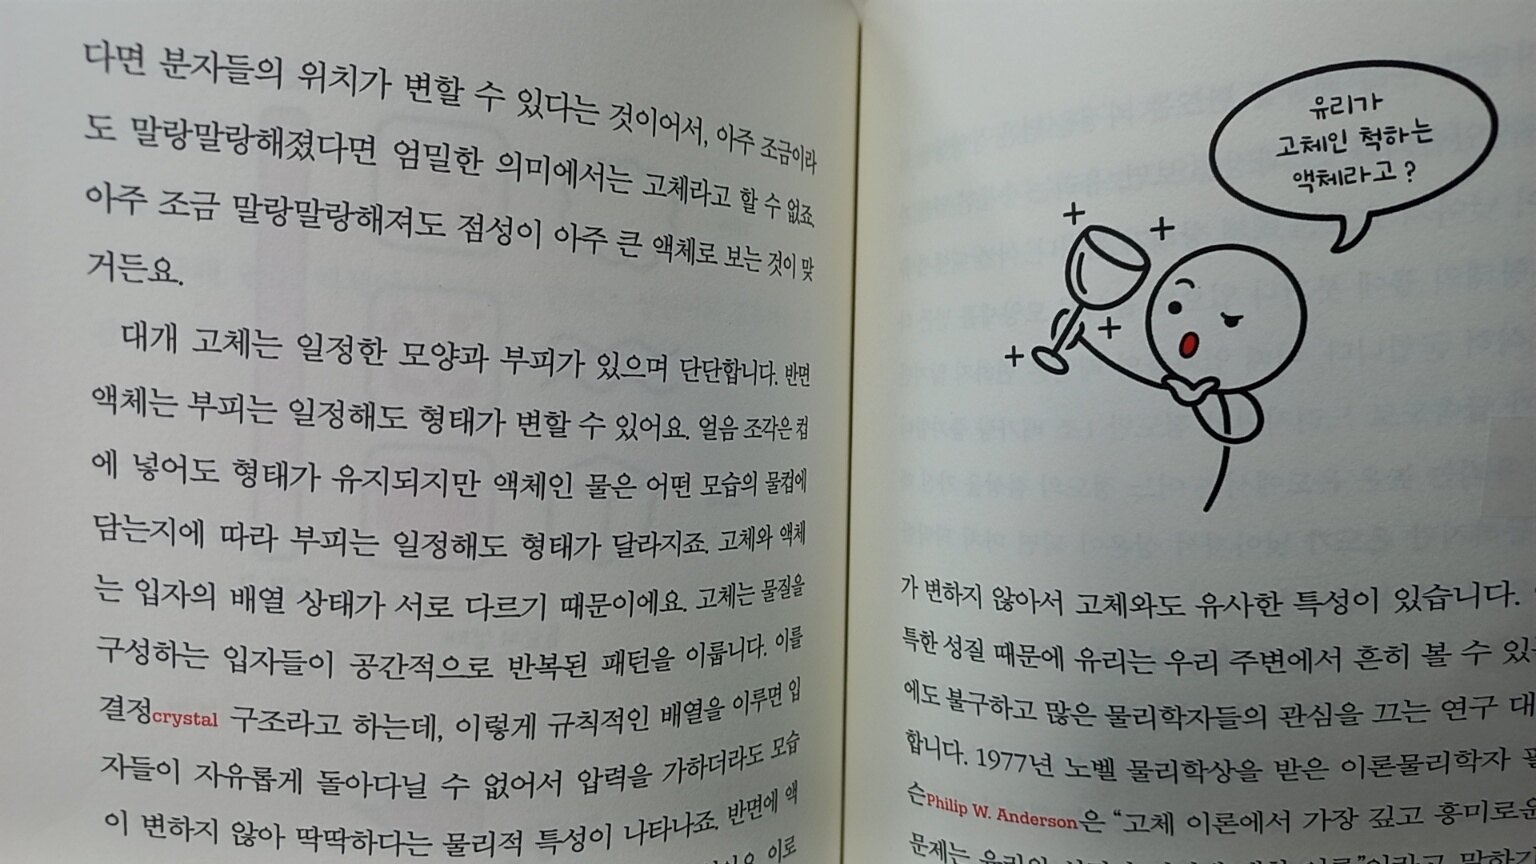 다면 분자들의 위치가 변할 수 있다는 것이어서, 아주 조금이라
도 말랑말랑해졌다면 엄밀한 의미에서는 고체라고 할 수 없죠
아주 조금 말랑말랑해져도 점성이 아주 큰 액체로 보는 것이 맞
거든요.
대개 고체는 일정한 모양과 부피가 있으며 단단합니다. 반면
액체는 부피는 일정해도 형태가 변할 수 있어요. 얼음 조각은 컵
에 넣어도 형태가 유지되지만 액체인 물은 어떤 모습의 물컵에
담는지에 따라 부피는 일정해도 형태가 달라지죠. 고체와 액체
는 입자의 배열 상태가 서로 다르기 때문이에요. 고체는 물질을
구성하는 입자들이 공간적으로 반복된 패턴을 이룹니다. 이를
결정crystal 구조라고 하는데, 이렇게 규칙적인 배열을 이루면 입
자들이 자유롭게 돌아다닐 수 없어서 압력을 가하더라도 모습
이 변하지 않아 딱딱하다는 물리적 특성이 나타나죠. 반면에 액
이로
유리가
고체인 척하는
액체라고?
가 변하지 않아서 고체와도 유사한 특성이 있습니다.
특한 성질 때문에 유리는 우리 주변에서 흔히 볼 수 있
에도 불구하고 많은 물리학자들의 관심을 끄는 연구 대
합니다. 1977년 노벨 물리학상을 받은 이론물리학자
슨Philip W. Anderson은 “고체 이론에서 가장 깊고 흥미로운
문제는 유리의